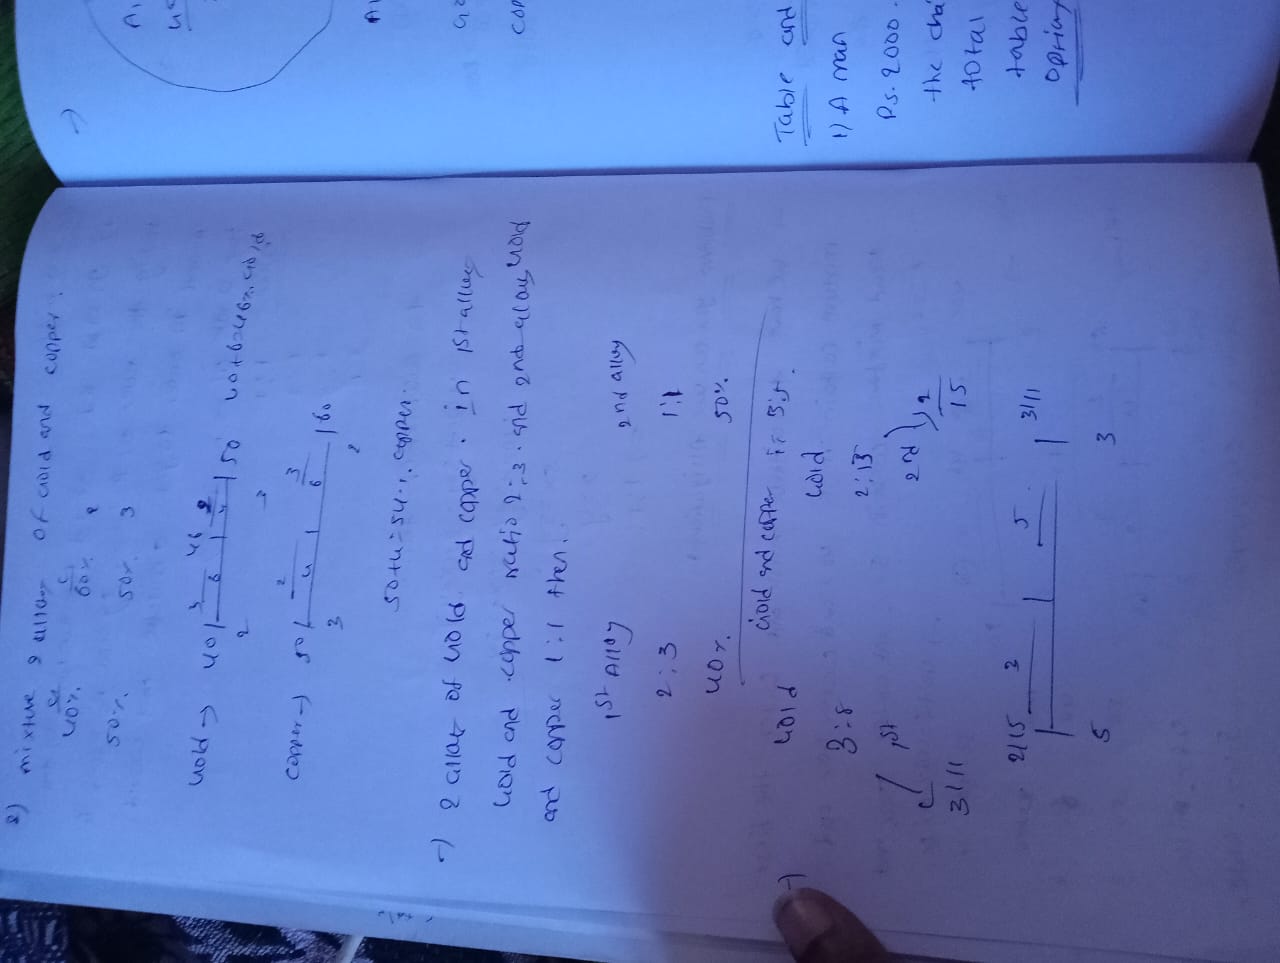 2) mixture 2 alloy of Gold and copper.
G C
40% 60% 2
50% 50% 3
Gold → 40 | 3 46 2 | 50 40+6=46% Gold
6 4
2
copper → 50 | 2 3 | 60
4 6
3 2
50+4=54% copper.
→) 2 alloy of Gold and copper. in 1st alloy
Gold and copper ratio 2:3. and 2nd alloy Gold
and copper 1:1 then.
1st Alloy 2nd alloy
2:3 1:1
40% 50%
Gold and copper is 5:5.
Gold Gold
3:8 2:13
1st 2nd 2
15
3/11
2/15 3 5 3/11
5 3
Table and
1) A man
Rs. 2000.
the cha
total
table